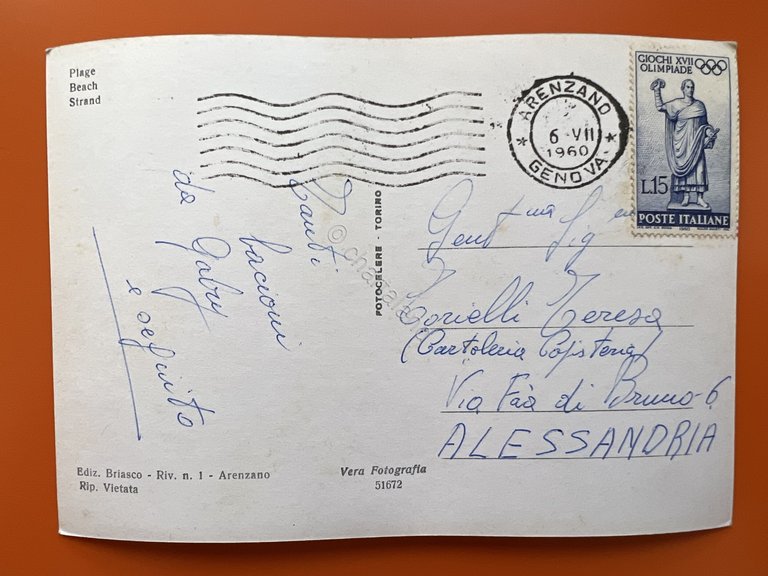 Plage
Beach
Strand
ARENZANO
6-VII
1960
GENOVA
GIOCHI XVII
OLIMPIADE
L.15
POSTE ITALIANE
Tanti
bacioni
da Gabry
e seguito
FOTOCELERE - TORINO
Gent.ma Sig.
Torielli Teresa
(Cartoleria
Via Faà di Bruno-6
ALESSANDRIA
Ediz. Briasco - Riv. n. 1 - Arenzano
Rip. Vietata
Vera Fotografia
51672